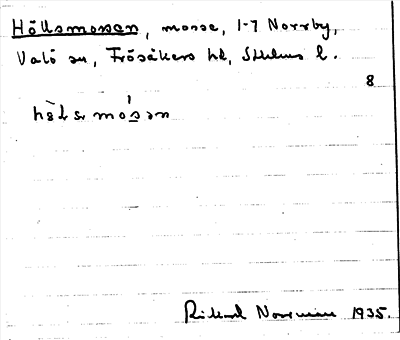 Hällsmossen, mosse, 1-7 Norrby,
Valö sn, Frösåkers hd, Sthlms l.
8
Rickard Norrman 1935.